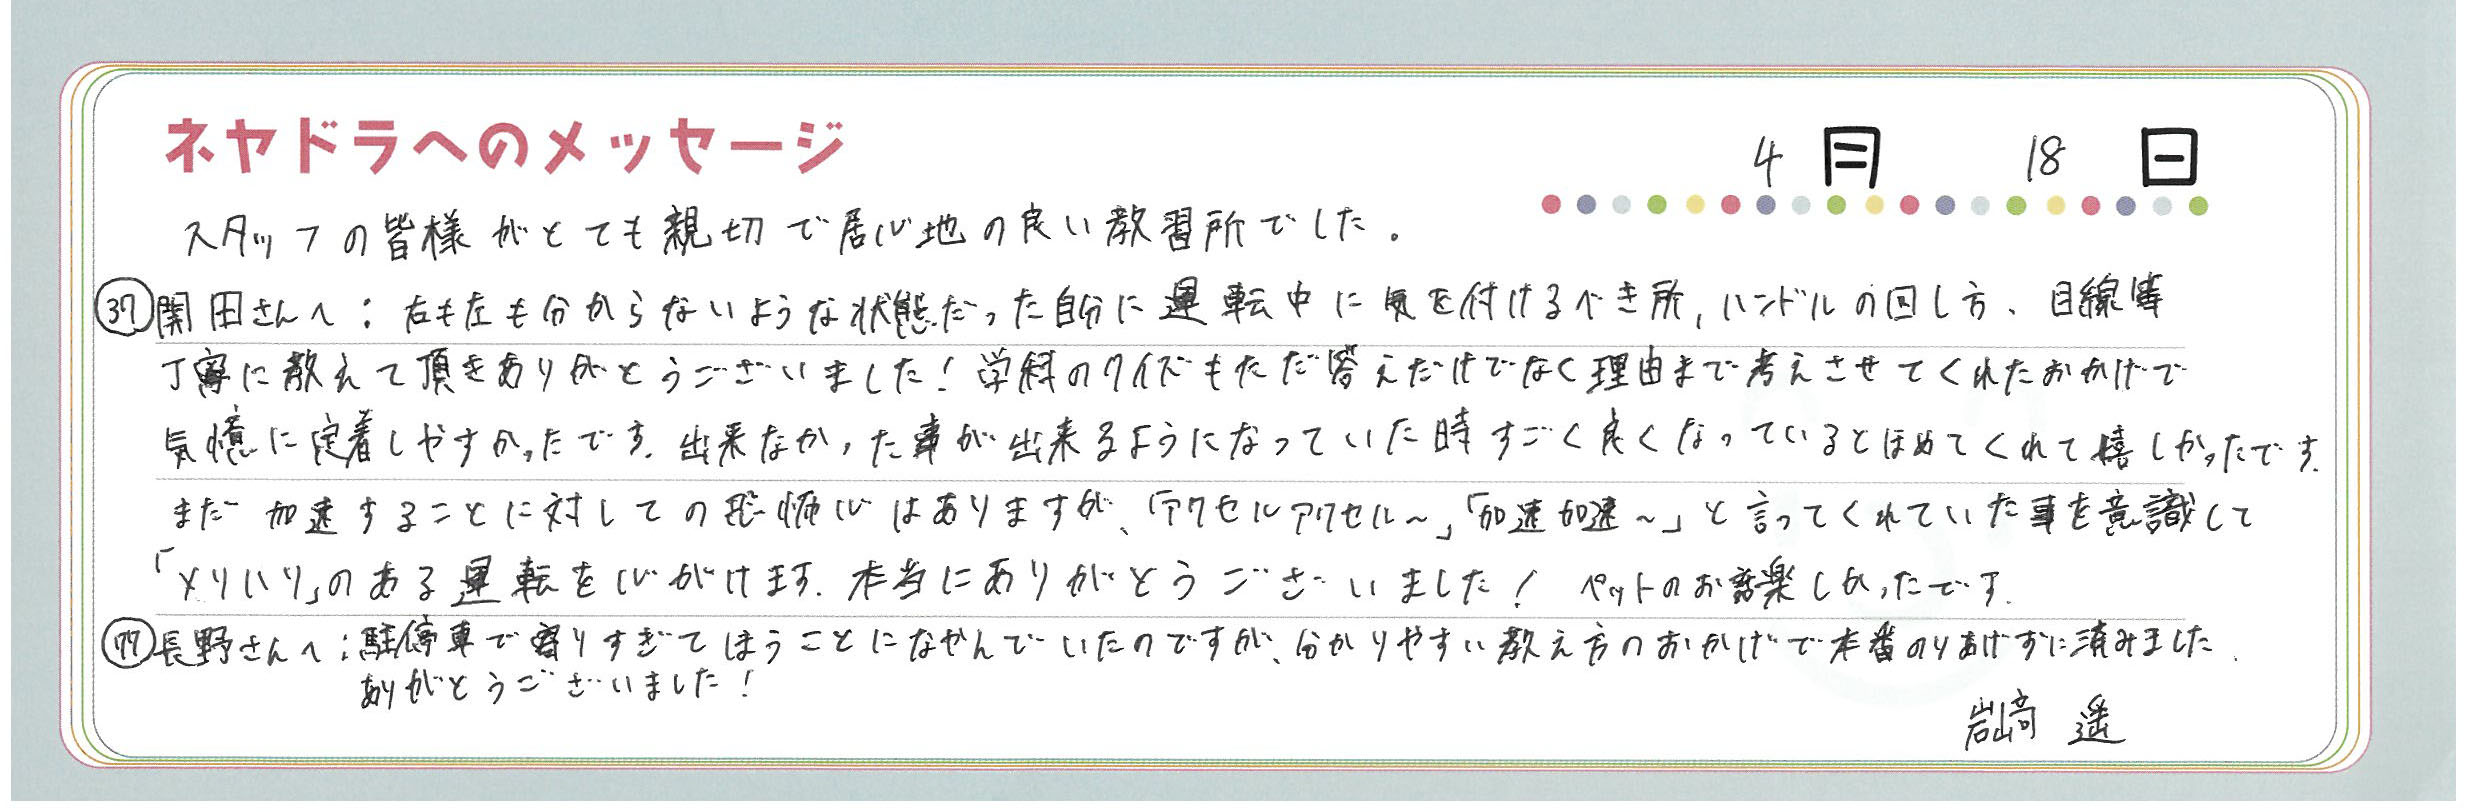 ネヤドラへのメッセージ
4月 18日
スタッフの皆様がとても親切で居心地の良い教習所でした。
㊲関田さんへ:右も左も分からないような状態だった自分に運転中に気を付けるべき所、ハンドルの回し方、目線等
丁寧に教えて頂きありがとうございました!学科のクイズもただ答えだけでなく理由まで考えさせてくれたおかげで
気憶に定着しやすかったです。出来なかった事が出来るようになっていた時すごく良くなっているとほめてくれて嬉しかったです。
まだ加速することに対しての恐怖心はありますが、「アクセルアクセル~」「加速加速~」と言ってくれていた事を意識して
「メリハリ」のある運転を心がけます。本当にありがとうございました! ペットのお話楽しかったです。
77長野さんへ:駐停車で寄りすぎてしまうことになやんでいたのですが、分かりやすい教え方のおかげで本番のりあげずに済みました。
ありがとうございました!
岩﨑 遥